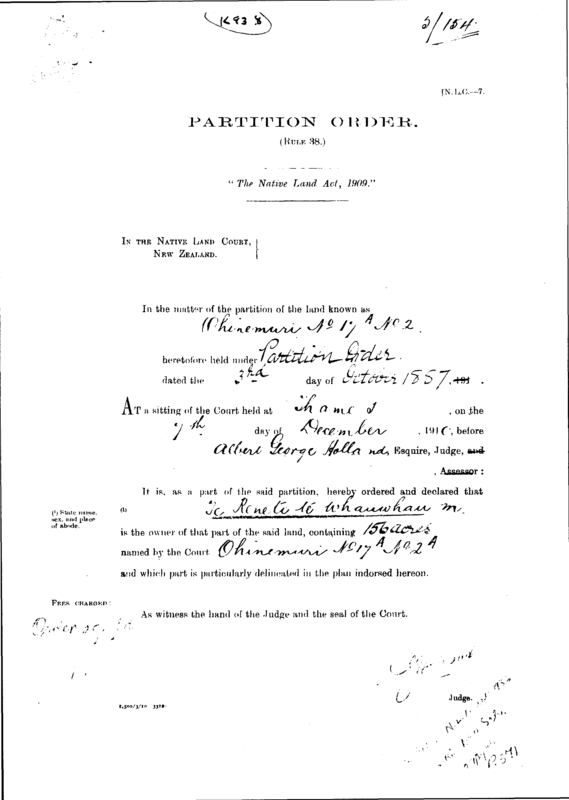 K93
2/154.
[N.L.C.—7.
PARTITION ORDER.
(RULE 38.)
"The Native Land Act, 1909."
IN THE NATIVE LAND COURT,
NEW ZEALAND.
In the matter of the partition of the land known as
Ohinemuri No 17A No 2.
heretofore held under Partition Order.
dated the 3rd day of October 1887. 191 .
AT a sitting of the Court held at Thames , on the
7th day of December , 191 , before
Albert George Holland, Esquire, Judge, and
, Assessor:
It is, as a part of the said partition, hereby ordered and declared that
(¹) State name, sex, and place of abode.
(1) Te Reneti te Whauwhau m.
is the owner of that part of the said land, containing 156 acres
named by the Court Ohinemuri No 17A No 2A
and which part is particularly delineated in the plan indorsed hereon.
FEES CHARGED:
Order
As witness the hand of the Judge and the seal of the Court.
Judge.
1,500/3/10 3328